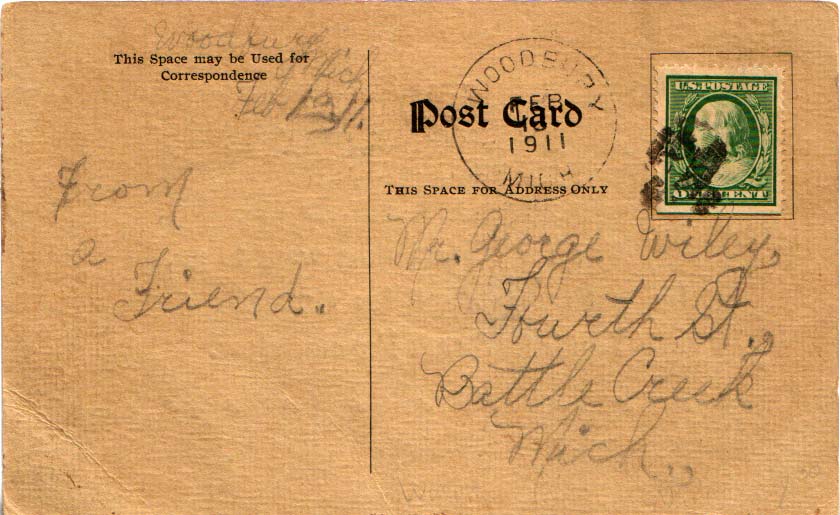 Woodbury
Mich
Feb
11.
This Space may be Used for
Correspondence
From
a
Friend.
WOODBURY
FEB
1911
MICH
Post Card
THIS SPACE FOR ADDRESS ONLY
U.S. POSTAGE
ONE CENT
Mr. George Wiley,
Fourth St.,
Battle Creek
Mich.,